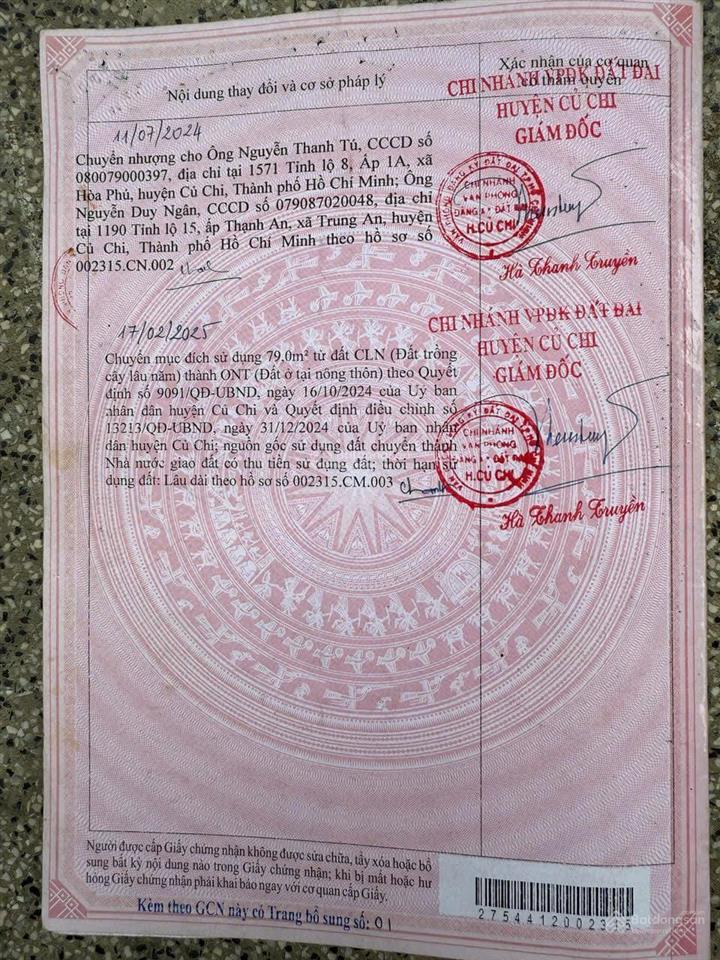 Nội dung thay đổi và cơ sở pháp lý
Xác nhận của cơ quan
có thẩm quyền
CHI NHÁNH VPĐK ĐẤT ĐAI
HUYỆN CỦ CHI
GIÁM ĐỐC
11/07/2024
Chuyển nhượng cho Ông Nguyễn Thanh Tú, CCCD số
080079000397, địa chỉ tại 1571 Tỉnh lộ 8, Ấp 1A, xã
Hòa Phú, huyện Củ Chi, Thành phố Hồ Chí Minh; Ông
Nguyễn Duy Ngân, CCCD số 079087020048, địa chỉ
tại 1190 Tỉnh lộ 15, ấp Thạnh An, xã Trung An, huyện
Củ Chi, Thành phố Hồ Chí Minh theo hồ sơ số
002315.CN.002
CHI NHÁNH
VĂN PHÒNG
ĐĂNG KÝ ĐẤT ĐAI
H.CỦ CHI
Hà Thanh Truyền
17/02/2025
CHI NHÁNH VPĐK ĐẤT ĐAI
HUYỆN CỦ CHI
GIÁM ĐỐC
Chuyển mục đích sử dụng 79,0m² từ đất CLN (Đất trồng
cây lâu năm) thành ONT (Đất ở tại nông thôn) theo Quyết
định số 9091/QĐ-UBND, ngày 16/10/2024 của Uỷ ban
nhân dân huyện Củ Chi và Quyết định điều chỉnh số
13213/QĐ-UBND, ngày 31/12/2024 của Uỷ ban nhân
dân huyện Củ Chi; nguồn gốc sử dụng đất chuyển thành
Nhà nước giao đất có thu tiền sử dụng đất; thời hạn sử
dụng đất: Lâu dài theo hồ sơ số 002315.CM.003
CHI NHÁNH
VĂN PHÒNG
ĐĂNG KÝ ĐẤT ĐAI
H.CỦ CHI
Hà Thanh Truyền
Người được cấp Giấy chứng nhận không được sửa chữa, tẩy xóa hoặc bổ
sung bất kỳ nội dung nào trong Giấy chứng nhận; khi bị mất hoặc hư
hỏng Giấy chứng nhận phải khai báo ngay với cơ quan cấp Giấy.
Kèm theo GCN này có Trang bổ sung số: 01
Batdongsan